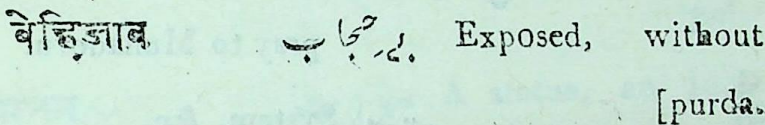 बेहिजाब بے حجاب Exposed, without
[purda.